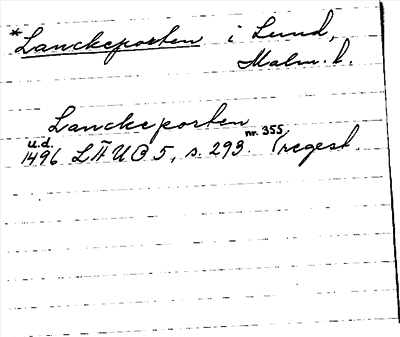 *Lanckeporten i Lund,
Malm. l.
Lanckeporten
u.d. 1496 LÄUB 5, s. 293. nr. 355 (regest.